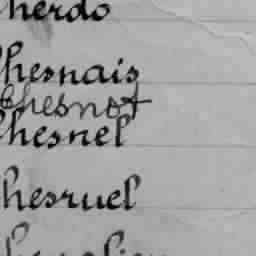 herdo
hesnais
Chesnot
Chesnel
hesruel